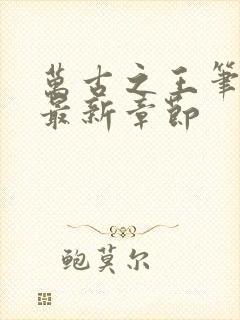 萬古之王筆
最新章節
鲍莫尔